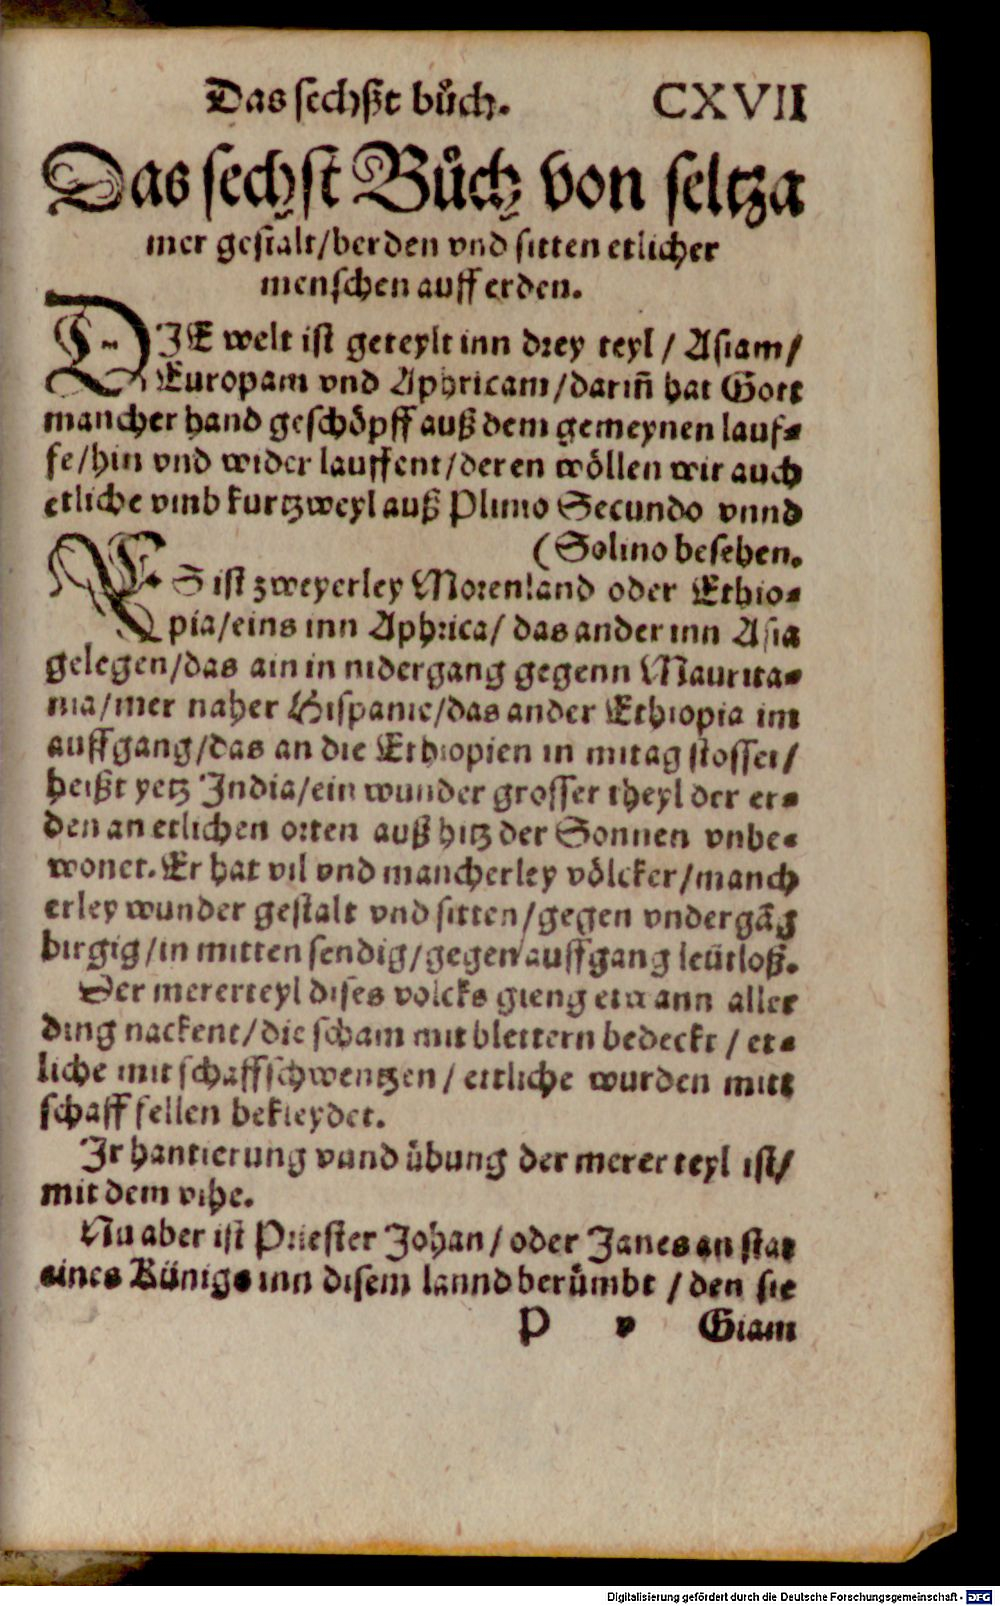 Das sechßt bůch. CXVII
Das sechst Bůch von seltza
mer gestalt/berden vnd sitten etlicher
menschen auff erden.
DIE welt ist geteylt inn drey teyl / Asiam/
Europam vnd Aphricam/darin̄ hat Gott
mancher hand geschöpff auß dem gemeynen lauf⸗
fe/hin vnd wider lauffent/deren wöllen wir auch
etliche vmb kurtzweyl auß Plinio Secundo vnnd
(Solino besehen.
ES ist zweyerley Morenland oder Ethio⸗
pia/eins inn Aphrica/ das ander inn Asia
gelegen/das ain in nidergang gegenn Maurita⸗
nia/mer naher Hispanie/das ander Ethiopia im
auffgang/das an die Ethiopien in mitag stosset/
heißt yetz India/ein wunder grosser theyl der er⸗
den an etlichen orten auß hitz der Sonnen vnbe⸗
wonet. Er hat vil vnd mancherley völcker/manch
erley wunder gestalt vnd sitten/gegen vndergãg
birgig/in mitten sendig/gegen auffgang leütloß.
Der mererteyl dises volcks gieng etwann aller
ding nackent/die scham mit blettern bedeckt / et⸗
liche mit schaffschwentzen / ettliche wurden mitt
schaff fellen bekleydet.
Ir hantierung vnnd übung der merer teyl ist/
mit dem vihe.
Nu aber ist Priester Johan / oder Janes an stat
eines Künigs inn disem lannd berümbt / den sie
P v Giam
Digitalisierung gefördert durch die Deutsche Forschungsgemeinschaft - DFG